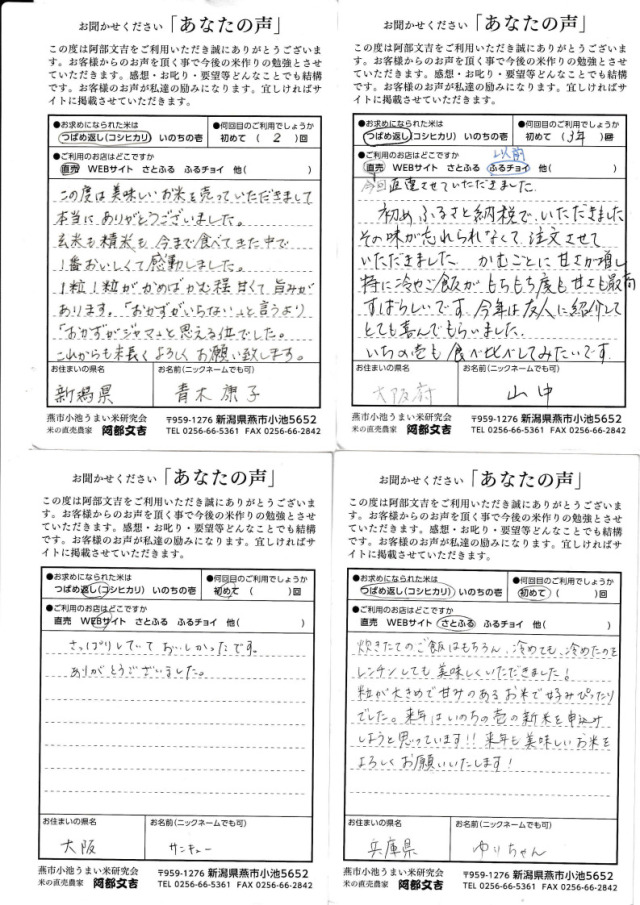 お聞かせください「あなたの声」
この度は阿部文吉をご利用いただき誠にありがとうございま
す。お客様からのお声を頂く事で今後の米作りの勉強とさせ
ていただきます。感想・お叱り・要望等どんなことでも結構
です。お客様のお声が私達の励みになります。宜しければサ
イトに掲載させていただきます。
●お求めになられた米は
つばめ返し(コシヒカリ) いのちの壱
●何回目のご利用でしょうか
初めて ( 2 )回
●ご利用のお店はどこですか
直売 WEBサイト さとふる ふるチョイ 他( )
この度は美味しいお米を売っていただきまして
本当にありがとうございました。
玄米も精米も、今まで食べてきた中で
1番おいしくて感動しました。
1粒1粒がかめばかむ程甘くて、旨みが
あります。「おかずがいらない」と言うより
「おかずがジャマ」と思える位でした。
これからも末長くよろしくお願い致します。
お住まいの県名
お名前(ニックネームでも可)
新潟県
青木 康子
燕市小池うまい米研究会
米の直売農家 阿部文吉
〒959-1276 新潟県燕市小池5652
TEL 0256-66-5361 FAX 0256-66-2842
お聞かせください「あなたの声」
この度は阿部文吉をご利用いただき誠にありがとうございま
す。お客様からのお声を頂く事で今後の米作りの勉強とさせ
ていただきます。感想・お叱り・要望等どんなことでも結構
です。お客様のお声が私達の励みになります。宜しければサ
イトに掲載させていただきます。
●お求めになられた米は
つばめ返し(コシヒカリ) いのちの壱
●何回目のご利用でしょうか
初めて ( 3年 )回
●ご利用のお店はどこですか
以前
直売 WEBサイト さとふる ふるチョイ 他( )
今回直売させていただきました。
初めふるさと納税で、いただきました
その味が忘れられなくて注文させて
いただきました。かむごとに甘さが増し
特に冷やご飯が、もちもち度も甘さも最高
すばらしいです。今年は友人に紹介して
とても喜んでもらいました。
いちの壱も食べ比べしてみたいです
お住まいの県名
お名前(ニックネームでも可)
大阪府
山中
燕市小池うまい米研究会
米の直売農家 阿部文吉
〒959-1276 新潟県燕市小池5652
TEL 0256-66-5361 FAX 0256-66-2842
お聞かせください「あなたの声」
この度は阿部文吉をご利用いただき誠にありがとうございま
す。お客様からのお声を頂く事で今後の米作りの勉強とさせ
ていただきます。感想・お叱り・要望等どんなことでも結構
です。お客様のお声が私達の励みになります。宜しければサ
イトに掲載させていただきます。
●お求めになられた米は
つばめ返し(コシヒカリ) いのちの壱
●何回目のご利用でしょうか
初めて ( )回
●ご利用のお店はどこですか
直売 WEBサイト さとふる ふるチョイ 他( )
さっぱりしていておいしかったです。
ありがとうございました。
お住まいの県名
お名前(ニックネームでも可)
大阪
サンキュー
燕市小池うまい米研究会
米の直売農家 阿部文吉
〒959-1276 新潟県燕市小池5652
TEL 0256-66-5361 FAX 0256-66-2842
お聞かせください「あなたの声」
この度は阿部文吉をご利用いただき誠にありがとうございま
す。お客様からのお声を頂く事で今後の米作りの勉強とさせ
ていただきます。感想・お叱り・要望等どんなことでも結構
です。お客様のお声が私達の励みになります。宜しければサ
イトに掲載させていただきます。
●お求めになられた米は
つばめ返し(コシヒカリ) いのちの壱
●何回目のご利用でしょうか
初めて ( )回
●ご利用のお店はどこですか
直売 WEBサイト さとふる ふるチョイ 他( )
炊きたてのご飯はもちろん、冷めても、冷めたのを
レンチンしても美味しくいただきました!
粒が大きめで甘みのあるお米で好みぴったり
でした。来年はいのちの壱の新米を申込み
しようと思っています!!来年も美味しいお米を
よろしくお願いいたします!
お住まいの県名
お名前(ニックネームでも可)
兵庫県
ゆりちゃん
燕市小池うまい米研究会
米の直売農家 阿部文吉
〒959-1276 新潟県燕市小池5652
TEL 0256-66-5361 FAX 0256-66-2842